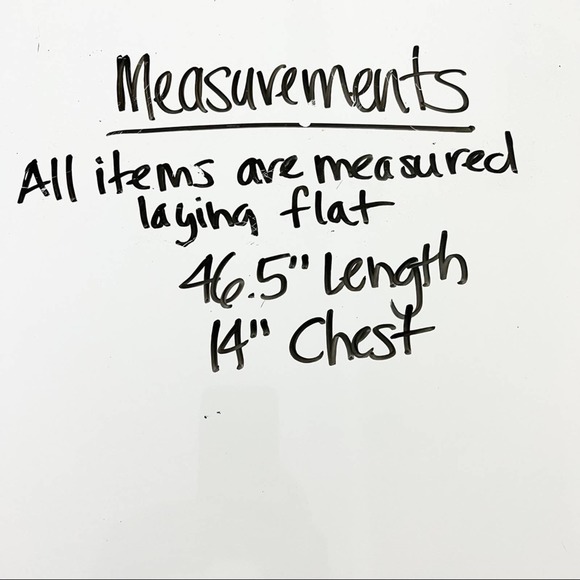 Measurements
All items are measured
laying flat
46.5" Length
14" Chest